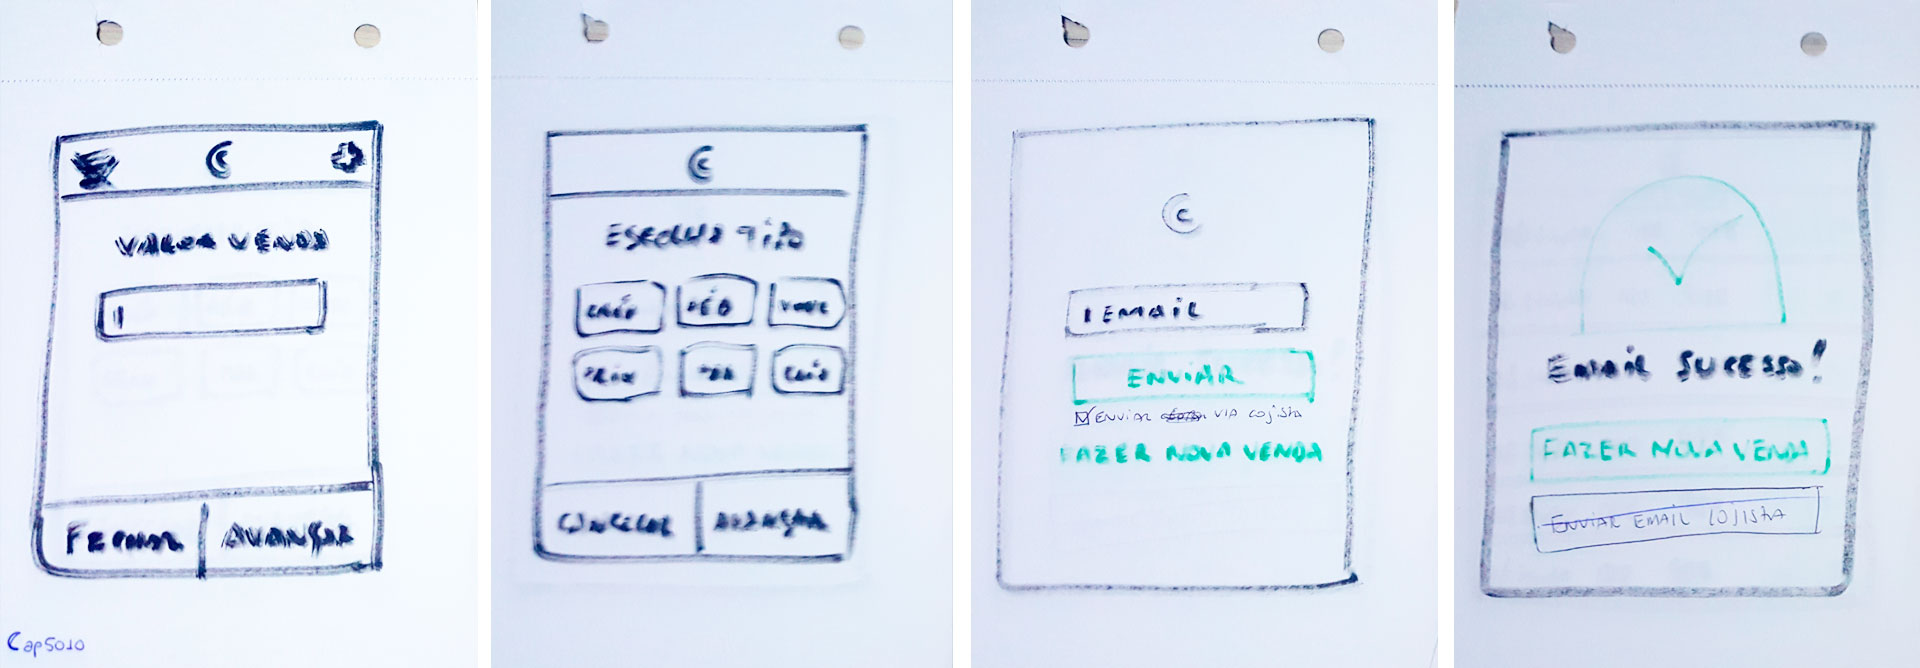 VALOR VENDA
FECHAR AVANÇAR
Cap5010
C
ESCOLHA TIPO
DÉB
CANCELAR AVANÇAR
C
EMAIL
ENVIAR
ENVIAR VIA LOJISTA
FAZER NOVA VENDA
EMAIL SUCESSO!
FAZER NOVA VENDA
ENVIAR EMAIL LOJISTA